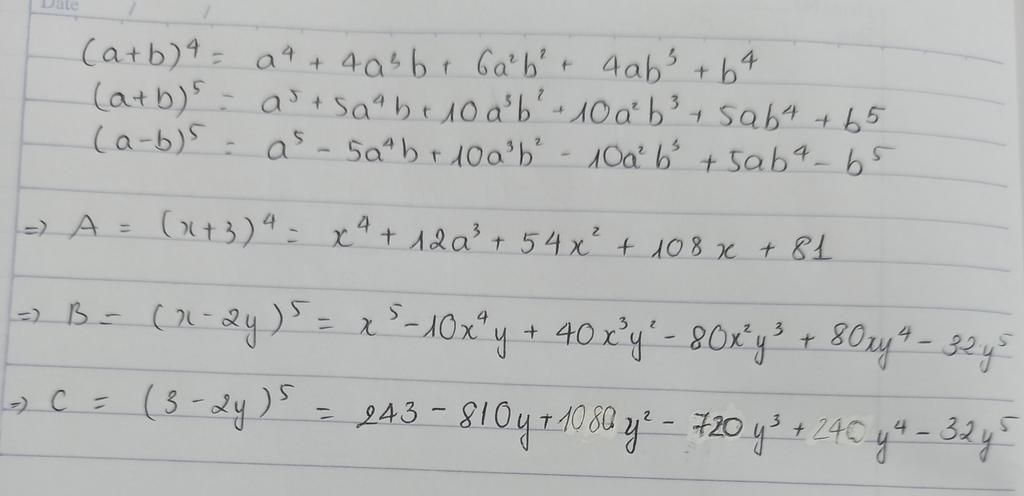 Date / /
(a+b)⁴ = a⁴ + 4a³b + 6a²b² + 4ab³ + b⁴
(a+b)⁵ = a⁵ + 5a⁴b + 10a³b² + 10a²b³ + 5ab⁴ + b⁵
(a-b)⁵ = a⁵ - 5a⁴b + 10a³b² - 10a²b³ + 5ab⁴ - b⁵
=> A = (x+3)⁴ = x⁴ + 12a³ + 54x² + 108x + 81
=> B = (x-2y)⁵ = x⁵ - 10x⁴y + 40x³y² - 80x²y³ + 80xy⁴ - 32y⁵
=> C = (3-2y)⁵ = 243 - 810y + 1080y² - 720y³ + 240y⁴ - 32y⁵